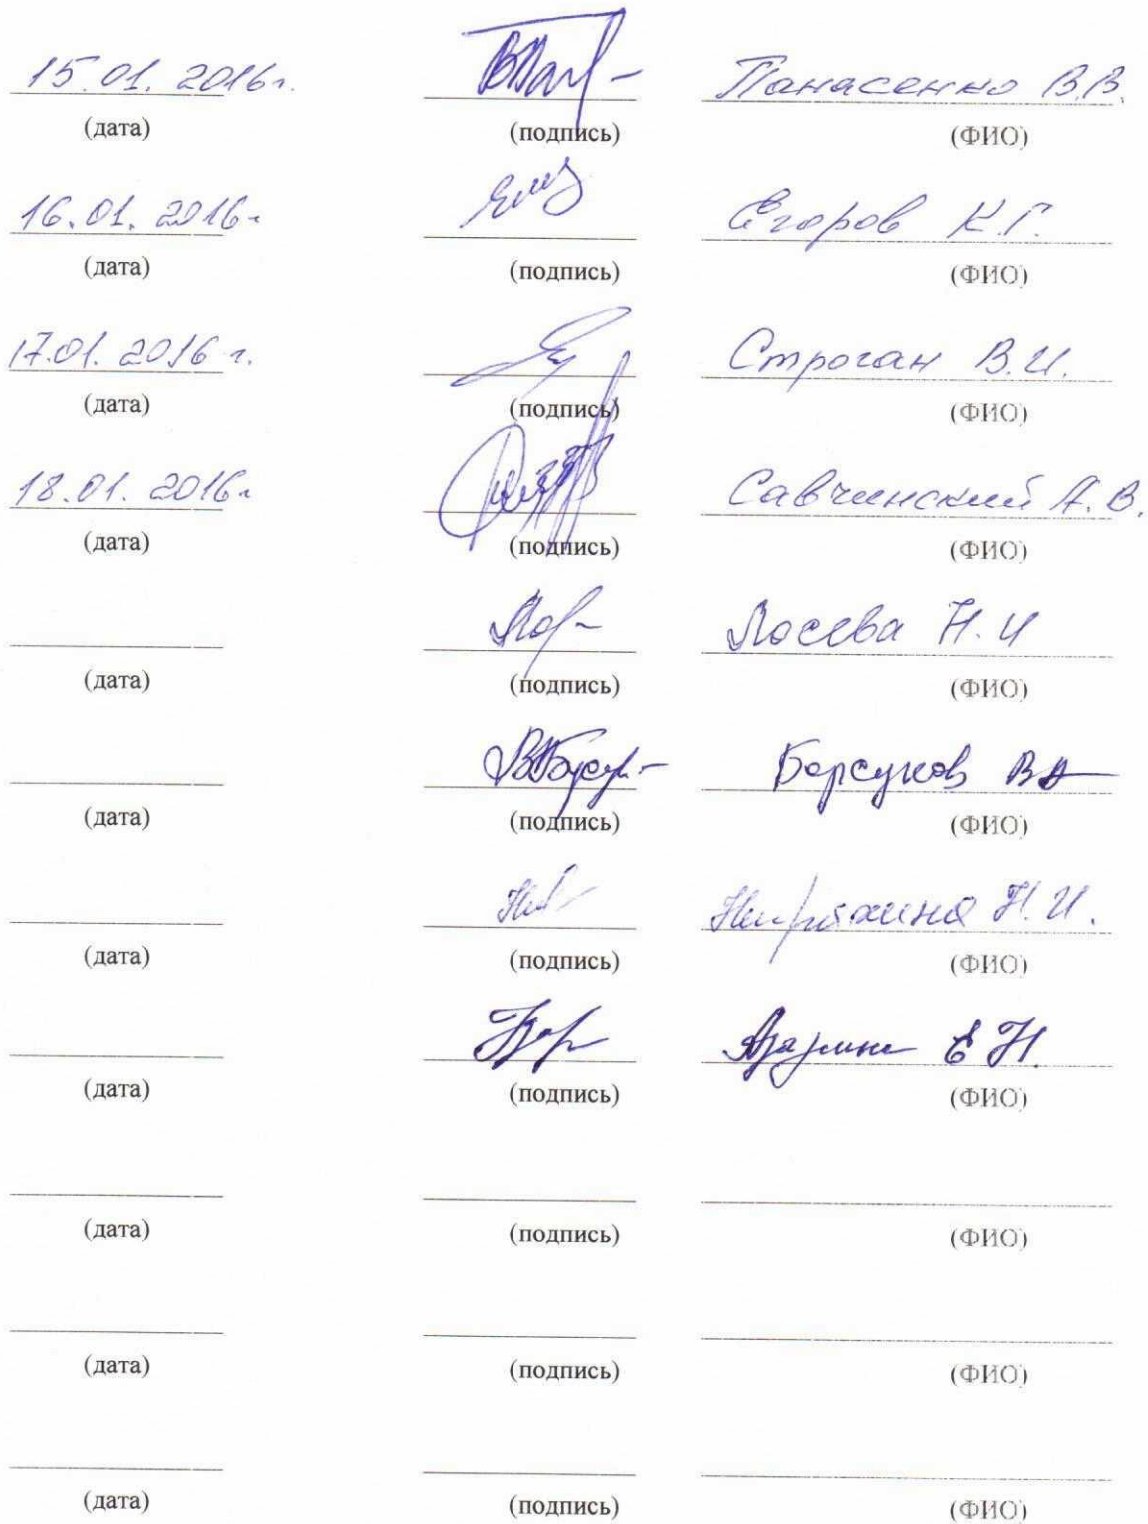 15.01.2016г. Панасенко В.В.
(дата) (подпись) (ФИО)
16.01.2016г Егоров К.Г.
(дата) (подпись) (ФИО)
17.01.2016 г. Строган В.И.
(дата) (подпись) (ФИО)
18.01.2016г Савчинский А.В.
(дата) (подпись) (ФИО)
Лосева Н.И
(дата) (подпись) (ФИО)
Борсуков В
(дата) (подпись) (ФИО)
Н.И.
(дата) (подпись) (ФИО)
Е Н.
(дата) (подпись) (ФИО)
(дата) (подпись) (ФИО)
(дата) (подпись) (ФИО)
(дата) (подпись) (ФИО)